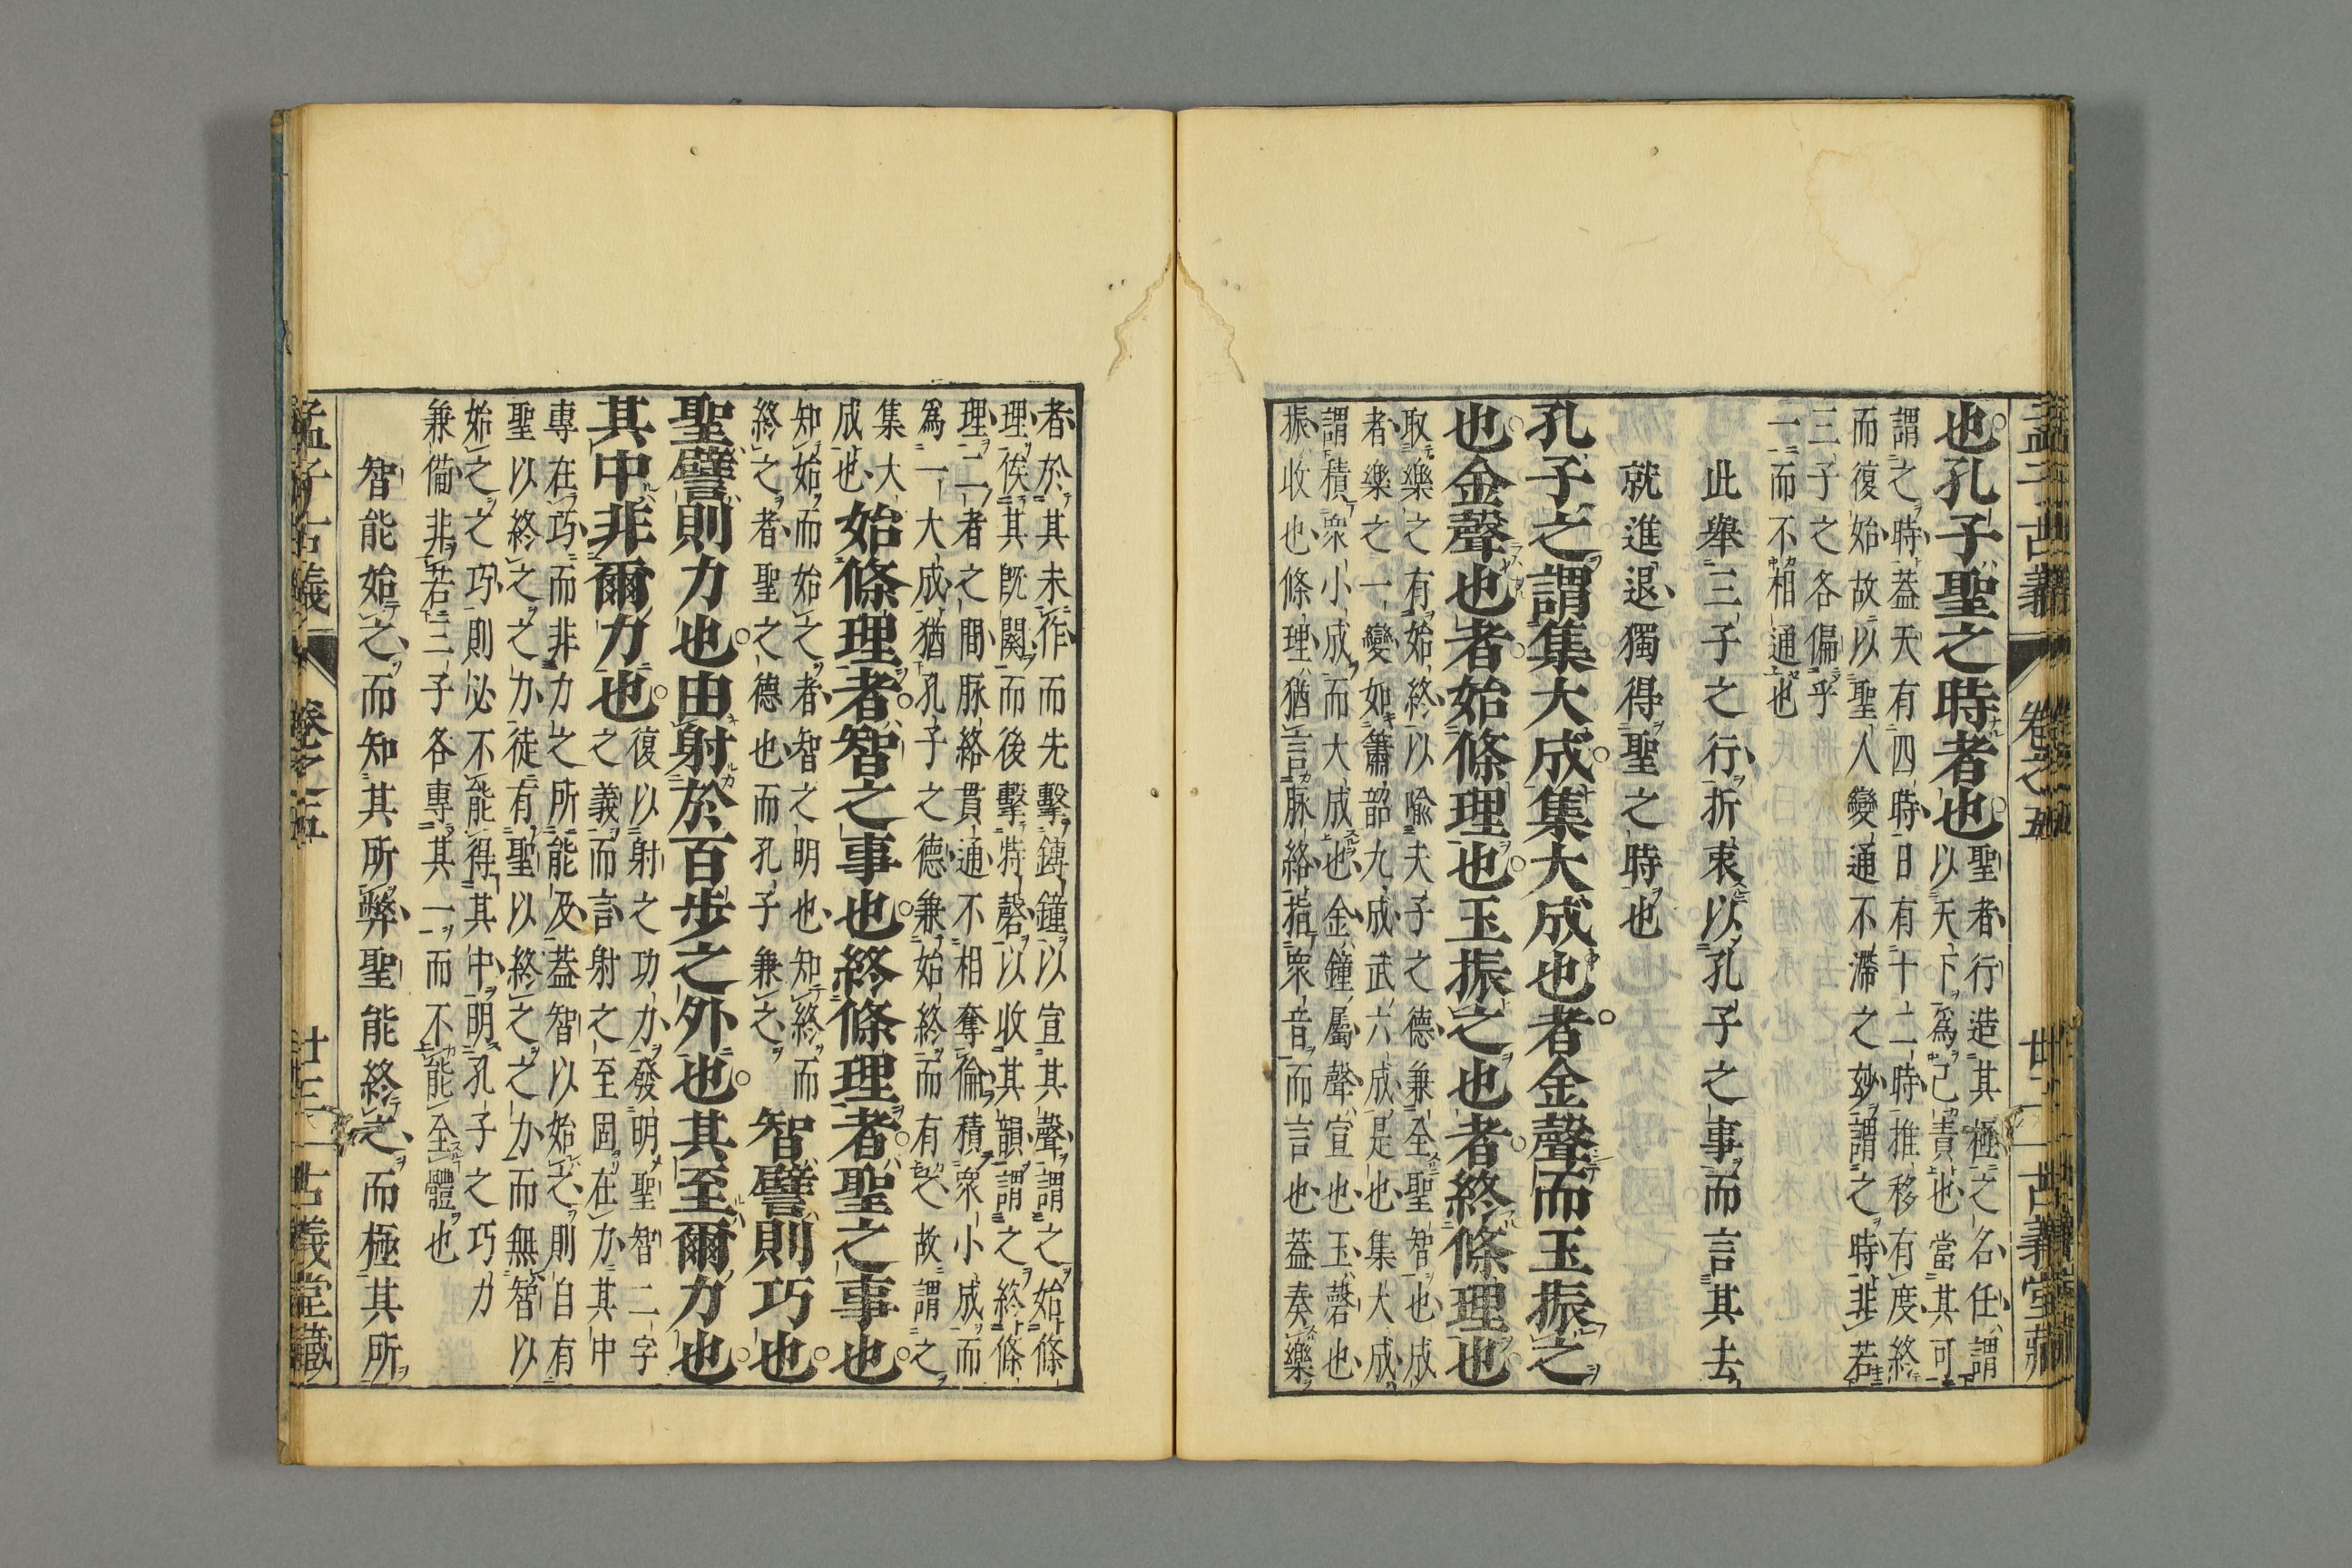 孟子古義 卷之五 古義堂藏
也孔子聖之時者也
聖者行造其極之名任謂
以天下爲己責也當其可
謂之時蓋天有四時日有十二時推移有度終
而復始故以聖人變通不滯之妙謂之時非若
三子之各偏乎
一而不相通也
此舉三子之行折衷以孔子之事而言其去
就進退獨得聖之時也
孔子之謂集大成集大成也者金聲而玉振之
也金聲也者始條理也玉振之也者終條理也
取樂之有始終以喩夫子之德兼全聖智也成
者樂之一變如簫韶九成武六成是也集大成
謂積衆小成而大成也金鐘屬聲宣也玉磬也
振收也條理猶言脉絡指衆音而言也蓋奏樂
者於其未作而先擊鎛鐘以宣其聲謂之始條
理俟其旣闋而後擊特磬以收其韻謂之終條
理二者之間脉絡貫通不相奪倫積衆小成而
爲一大成猶孔子之德兼始終而有之故謂之
集大
成也
始條理者智之事也終條理者聖之事也
知始而始之者智之明也知終而
終之者聖之德也而孔子兼之
智譬則巧也
聖譬則力也由射於百步之外也其至爾力也
其中非爾力也
復以射之功力發明聖智二字
之義而言射之至固在力其中
專在巧而非力之所能及蓋智以始之則自有
聖以終之之力徒有聖以終之之力而無智以
始之之巧則必不能得其中明孔子之巧力
兼備非若三子各專其一而不能全體也
智能始之而知其所弊聖能終之而極其所
孟子古義 卷之五 廿三 古義堂藏